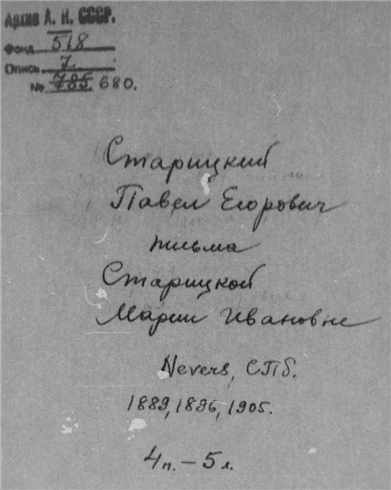 Архив А. Н. СССР.
Фонд 518
Опись 7.
№ 785. 680.
Старицкий
Павел Егорович
письма
Старицкой
Марии Ивановне
Nevers, СПб.
1889, 1896, 1905.
4п. – 5л.